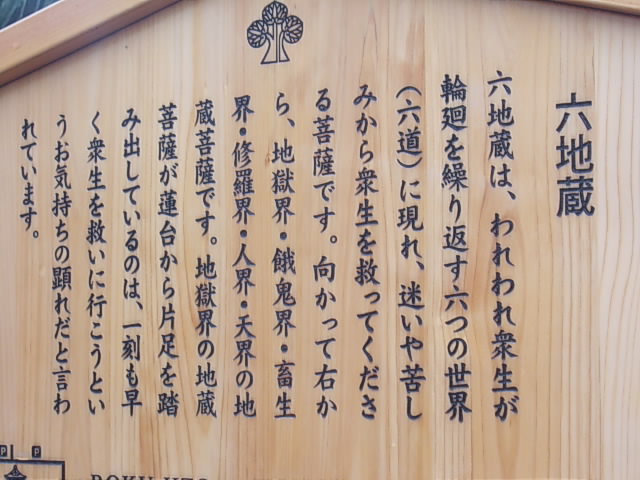 六地蔵
六地蔵は、われわれ衆生が
輪廻を繰り返す六つの世界
(六道)に現れ、迷いや苦し
みから衆生を救ってくださ
る菩薩です。向かって右か
ら、地獄界・餓鬼界・畜生
界・修羅界・人界・天界の地
蔵菩薩です。地獄界の地蔵
菩薩が蓮台から片足を踏
み出しているのは、一刻も早
く衆生を救いに行こうとい
うお気持ちの顕れだと言わ
れています。
P P